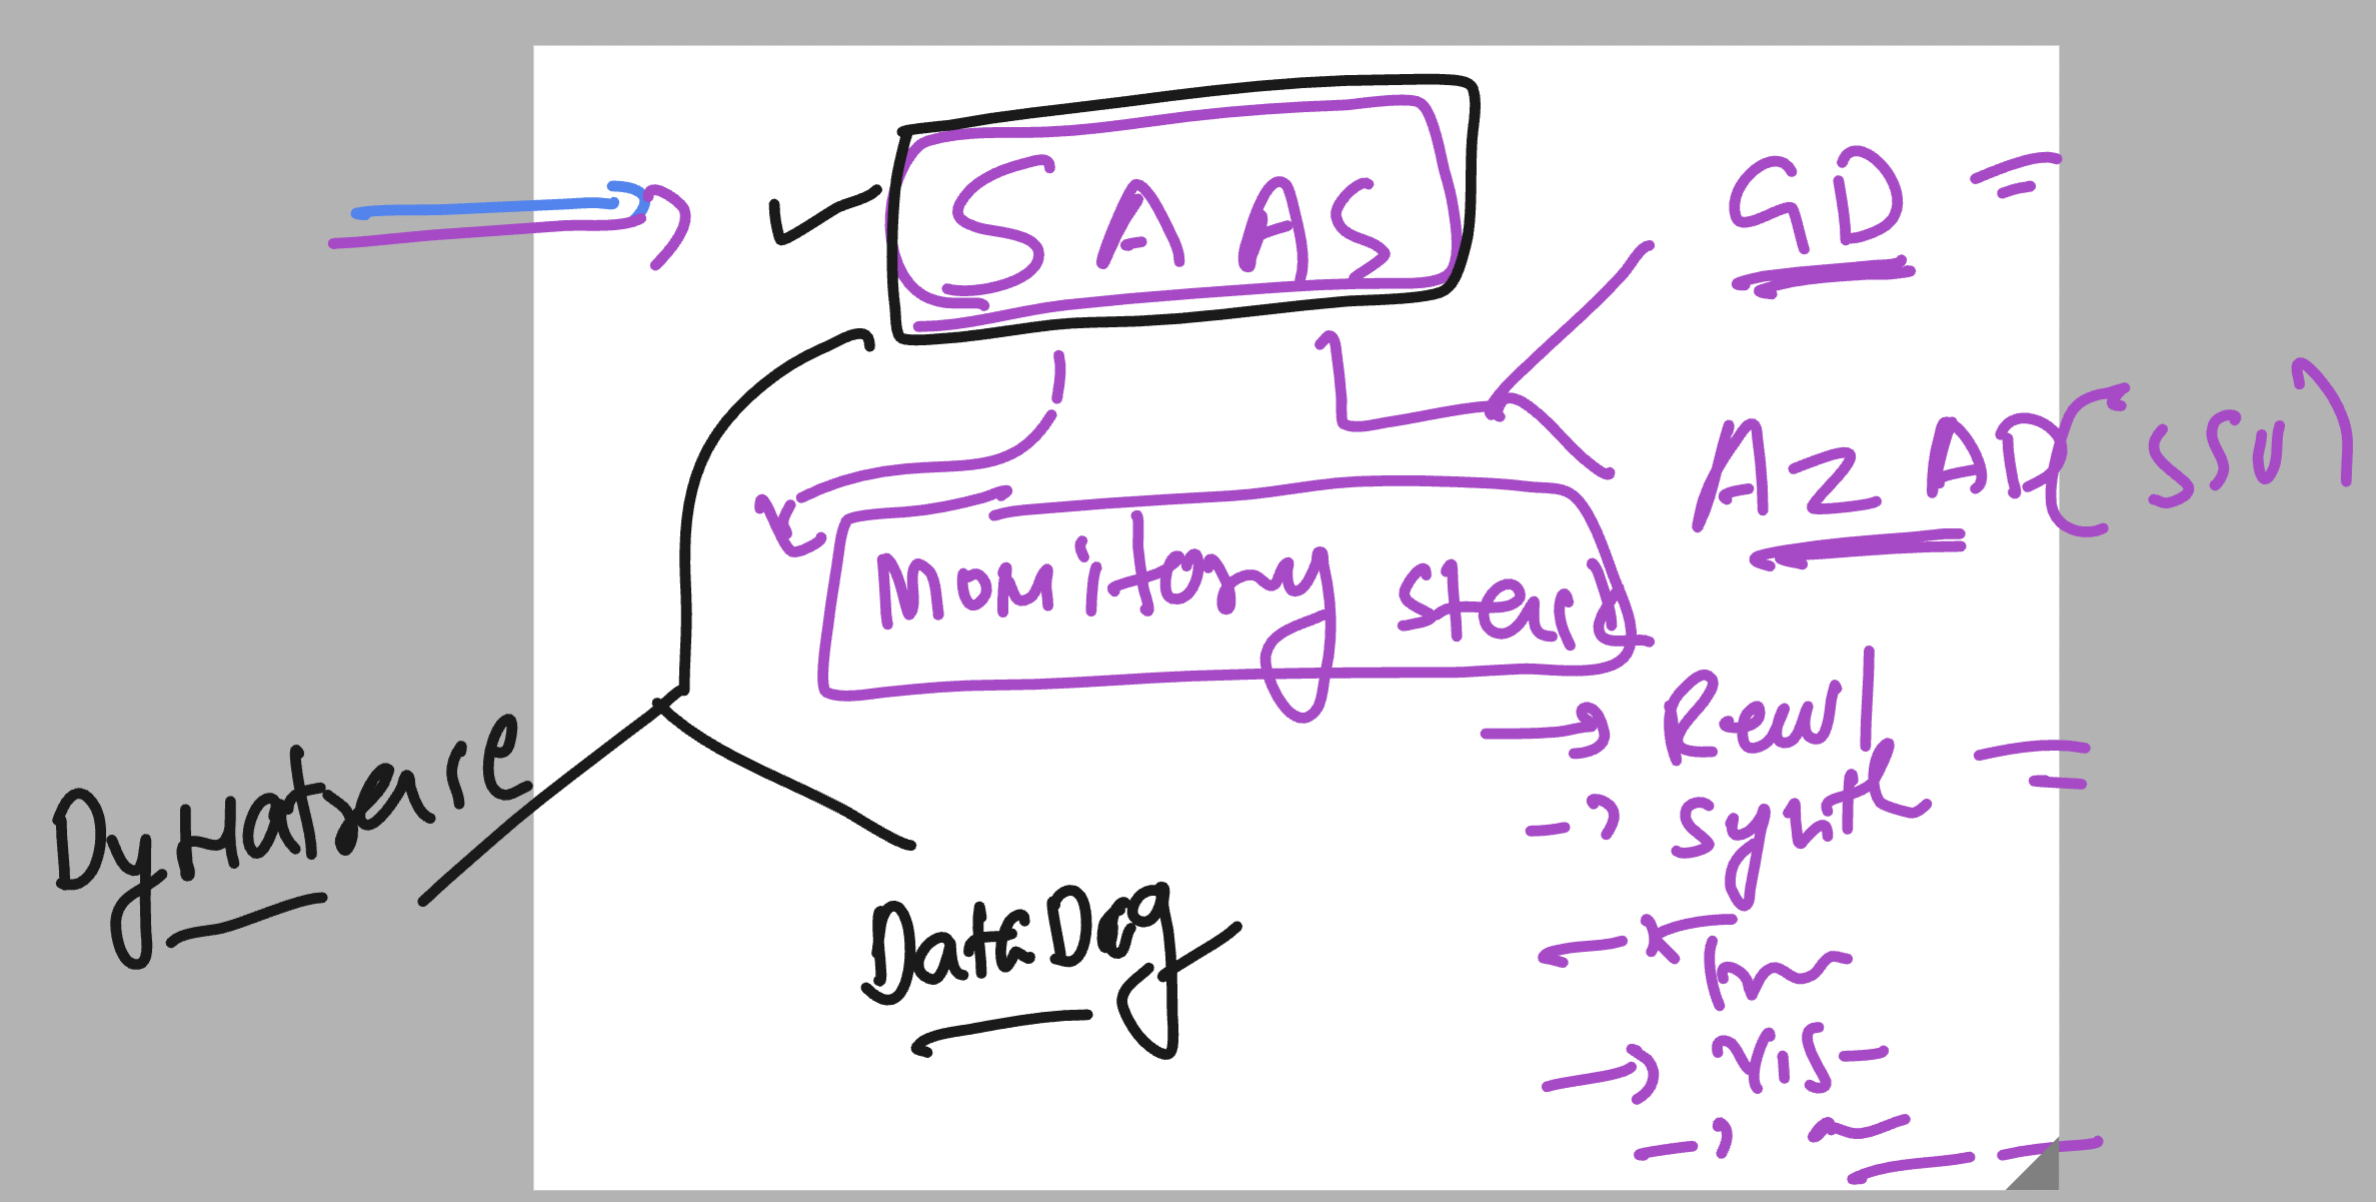 SAAS
GD
AZ AD (SSO)
Monitoring stack
Real
Synth
Dynatrace
DataDog
Vis